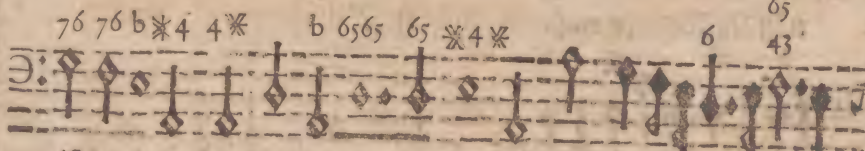 65
76 76 b ※ 4 4 ※ b 6565 65 ※ 4 ※ 6 43